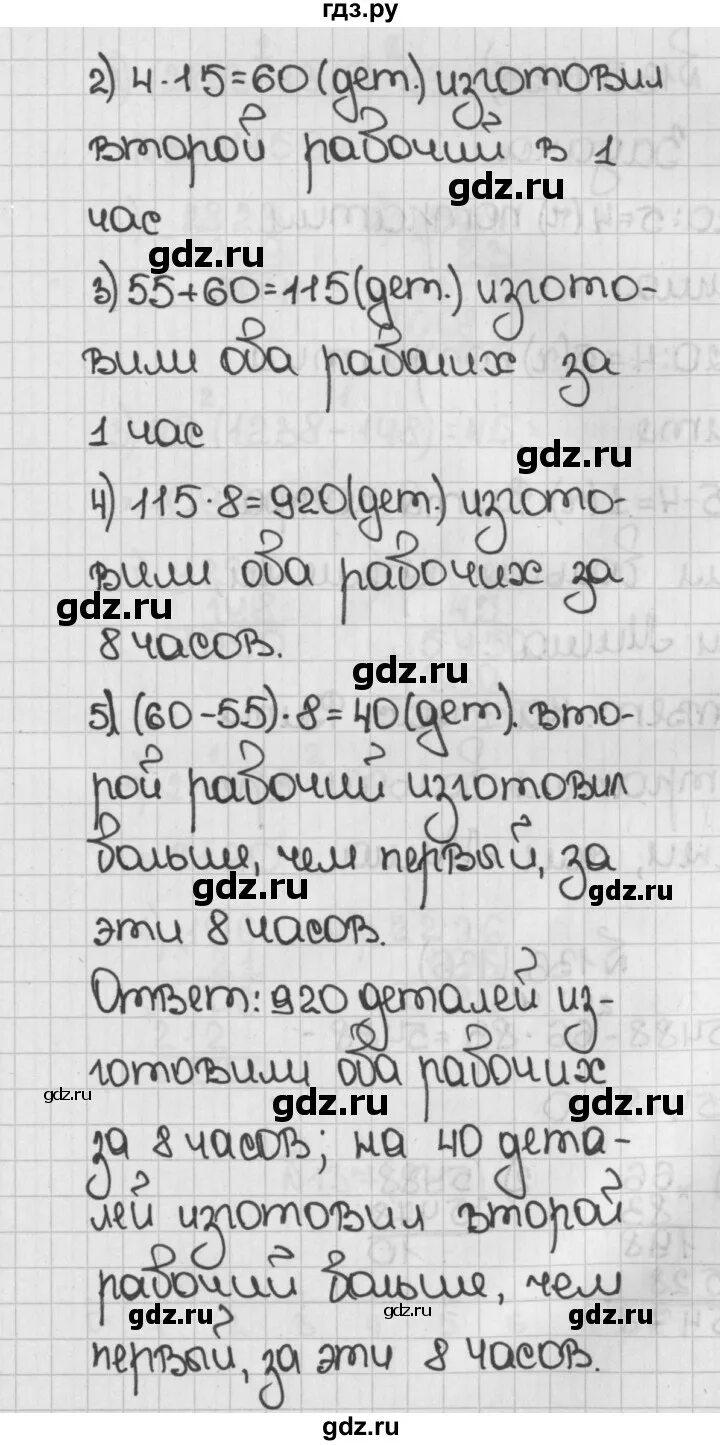 гдз.ру
2) 4·15=60(дет.) изготовил
второй рабочий в 1
gdz.ru
час
gdz.ru
3) 55+60=115(дет.) изгото-
вили оба рабочих за
1 час
gdz.ru
4) 115·8=920(дет.) изгото-
вили оба рабочих за
gdz.ru
8 часов.
gdz.ru
5) (60-55)·8=40(дет). вто-
рой рабочий изготовил
больше, чем первый, за
gdz.ru gdz.ru
эти 8 часов.
Ответ: 920 деталей из-
готовили оба рабочих
gdz.ru gdz.ru gdz.ru
за 8 часов; на 40 дета-
лей изготовил второй
рабочий больше, чем
gdz.ru gdz.ru gdz.ru
первый, за эти 8 часов.
gdz.ru